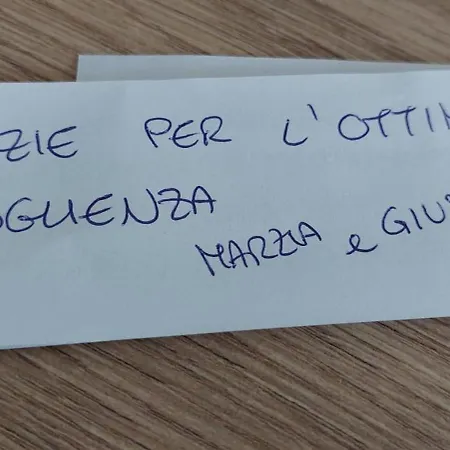 ZIE PER L'OTTIM
OGLIENZA
MARZIA e GIUS